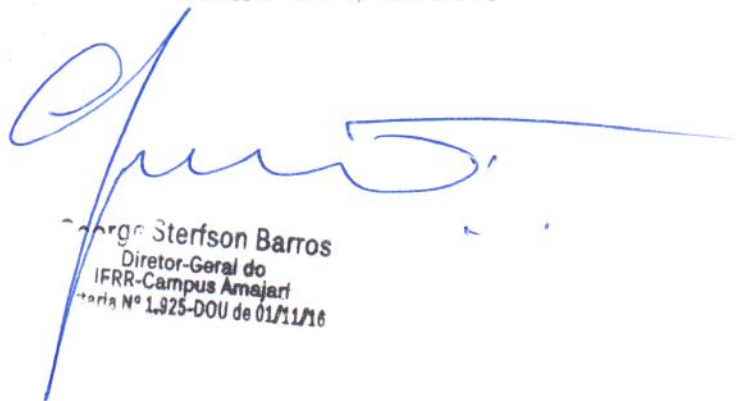 Sterfson Barros
Diretor-Geral do
IFRR-Campus Amajarí
Nº 1.925-DOU de 01/11/16